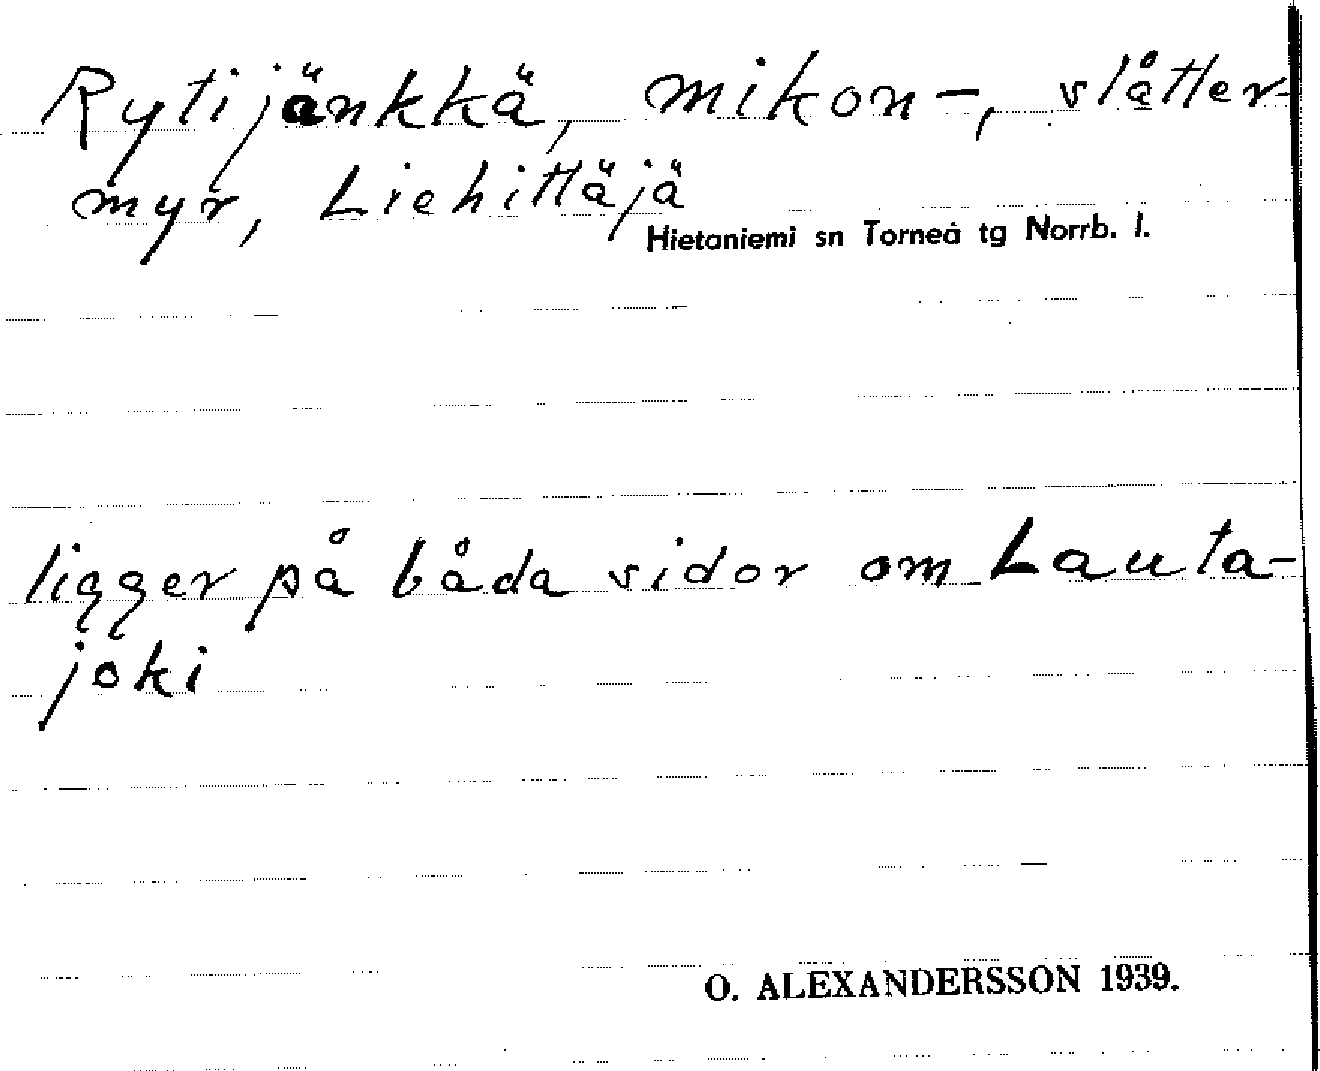 Rytijänkkä, mikon-, slåtter-
myr, Liehittäjä
Hietaniemi sn Torneå tg Norrb. l.
ligger på båda sidor om Lauta-
joki
O. ALEXANDERSSON 1939.